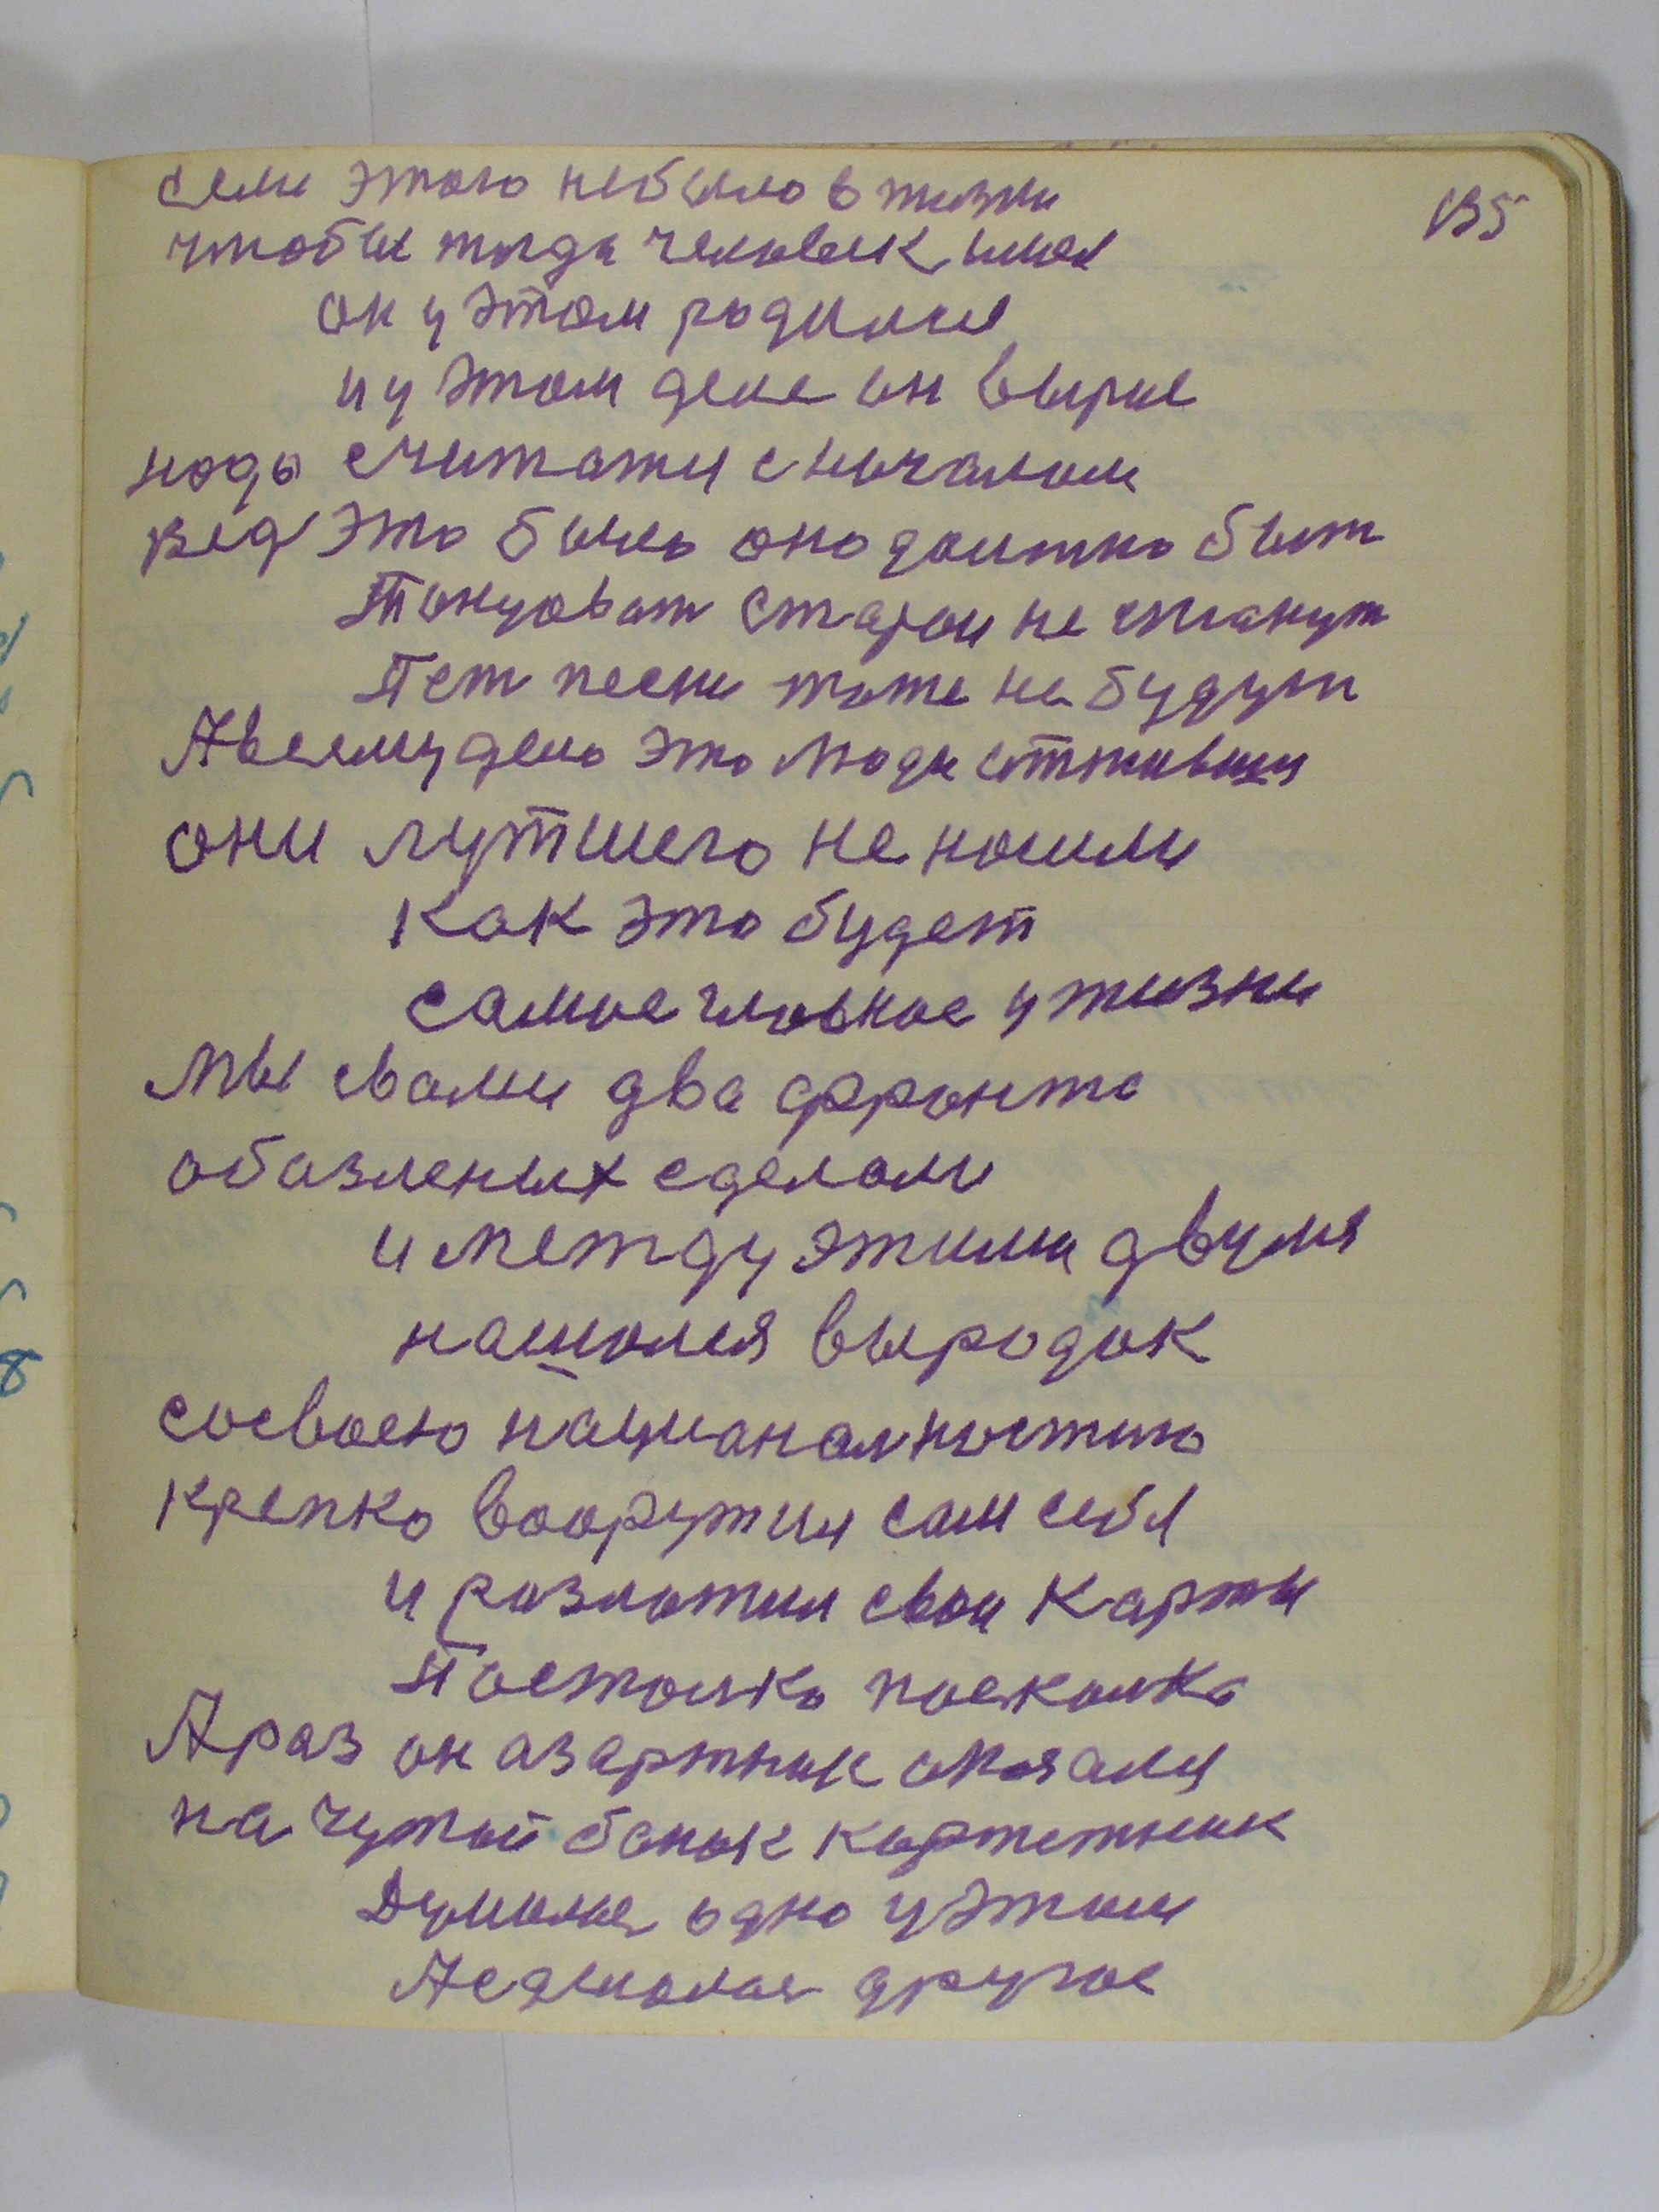 если этого небыло в жизни
135
чтобы тогда человек имел
он у этом родился
и у этом деле он вырос
надо считати с началом
вед это было оно должно быт
Танцоват старои не станут
Пет песни тоже не будут
А всему дело это люди отжившии
они лутшего не нашли
как это будет
самое гловное у жизни
Мы свами два фронта
обазленых сделали
и между этими двумя
нашолся выродок
сосвоею националностию
крепко вооружил сам себя
и разложил свои карты
Постолко посколко
А раз он азартник
на чужой банок картежник
Думалос одно у этом
А сделолос другое